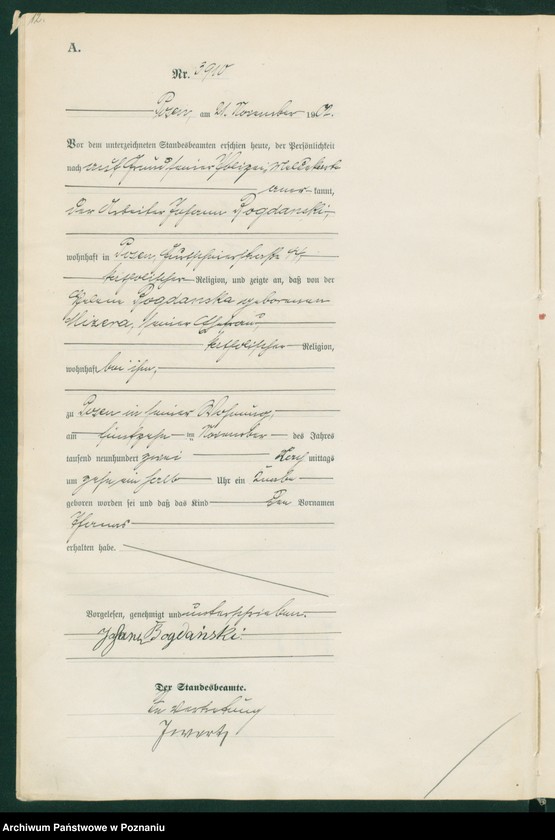 12.
A.
Nr. 3910
Posen, am 21. November 1902.
Vor dem unterzeichneten Standesbeamten erschien heute, der Persönlichkeit
nach auf Grund seiner Polizei-Meldekarte
aner kannt,
der Arbeiter Johann Bogdanski,
wohnhaft in Posen, 
katholischer Religion, und zeigte an, daß von der
Helene Bogdanska geborenen
Mizera, seiner Ehefrau,
katholischer Religion,
wohnhaft bei ihm,
zu Posen in seiner Wohnung,
am fünfzehn ten November des Jahres
tausend neunhundert zwei mittags
um zehn ein halb Uhr ein Knabe
geboren worden sei und daß das Kind den Vornamen
erhalten habe.
Vorgelesen, genehmigt und unterschrieben.
Johann Bogdański.
Der Standesbeamte.
In Vertretung
Archiwum Państwowe w Poznaniu